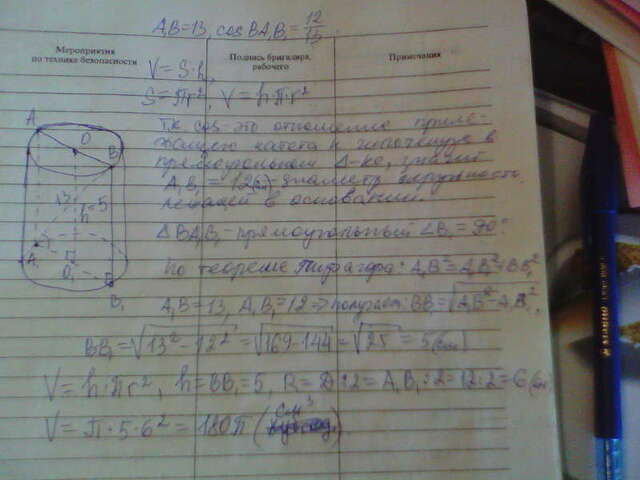 A₁B=13, cos BA₁B₁ = 12/13.
Мероприятия по технике безопасности
Подпись бригадира, рабочего
Примечания
V = S·h,
S = πr², V = h·π·r²
Т.к. cos - это отношение приле-
жащего катета к гипотенузе в
прямоугольном Δ-ке, значит
A₁B₁ = 12(см) - диаметр окружности,
лежащей в основании.
Δ BA₁B₁ - прямоугольный ∠B₁ = 90°
По теореме Пифагора: A₁B² = A₁B₁² + BB₁²
A₁B = 13, A₁B₁ = 12 ⇒ получаем: BB₁ = √A₁B² - A₁B₁²,
BB₁ = √13² - 12² = √169-144 = √25 = 5(см)
V = h·πr², h = BB₁ = 5, R = D:2 = A₁B₁:2 = 12:2 = 6(см)
V = π·5·6² = 180π (см³).
A
O
B
13
h=5
A₁
12
O₁
B
B₁